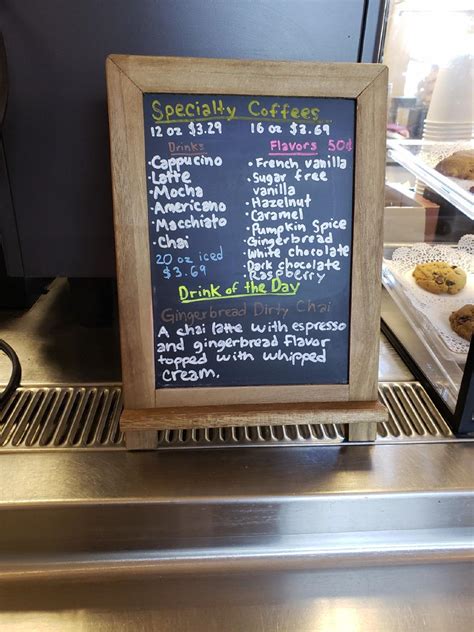 Specialty Coffees
12 oz $3.29 16 oz $3.69
Drinks
·Cappucino
·Latte
·Mocha
·Americano
·Macchiato
·Chai
20 oz iced
$3.69
Flavors 50¢
·French vanilla
·Sugar free
vanilla
·Hazelnut
·Caramel
·Pumpkin Spice
·Gingerbread
·White chocolate
·Dark chocolate
·Raspberry
Drink of the Day
Gingerbread Dirty Chai
A chai latte with espresso
and gingerbread flavor
topped with whipped
cream.